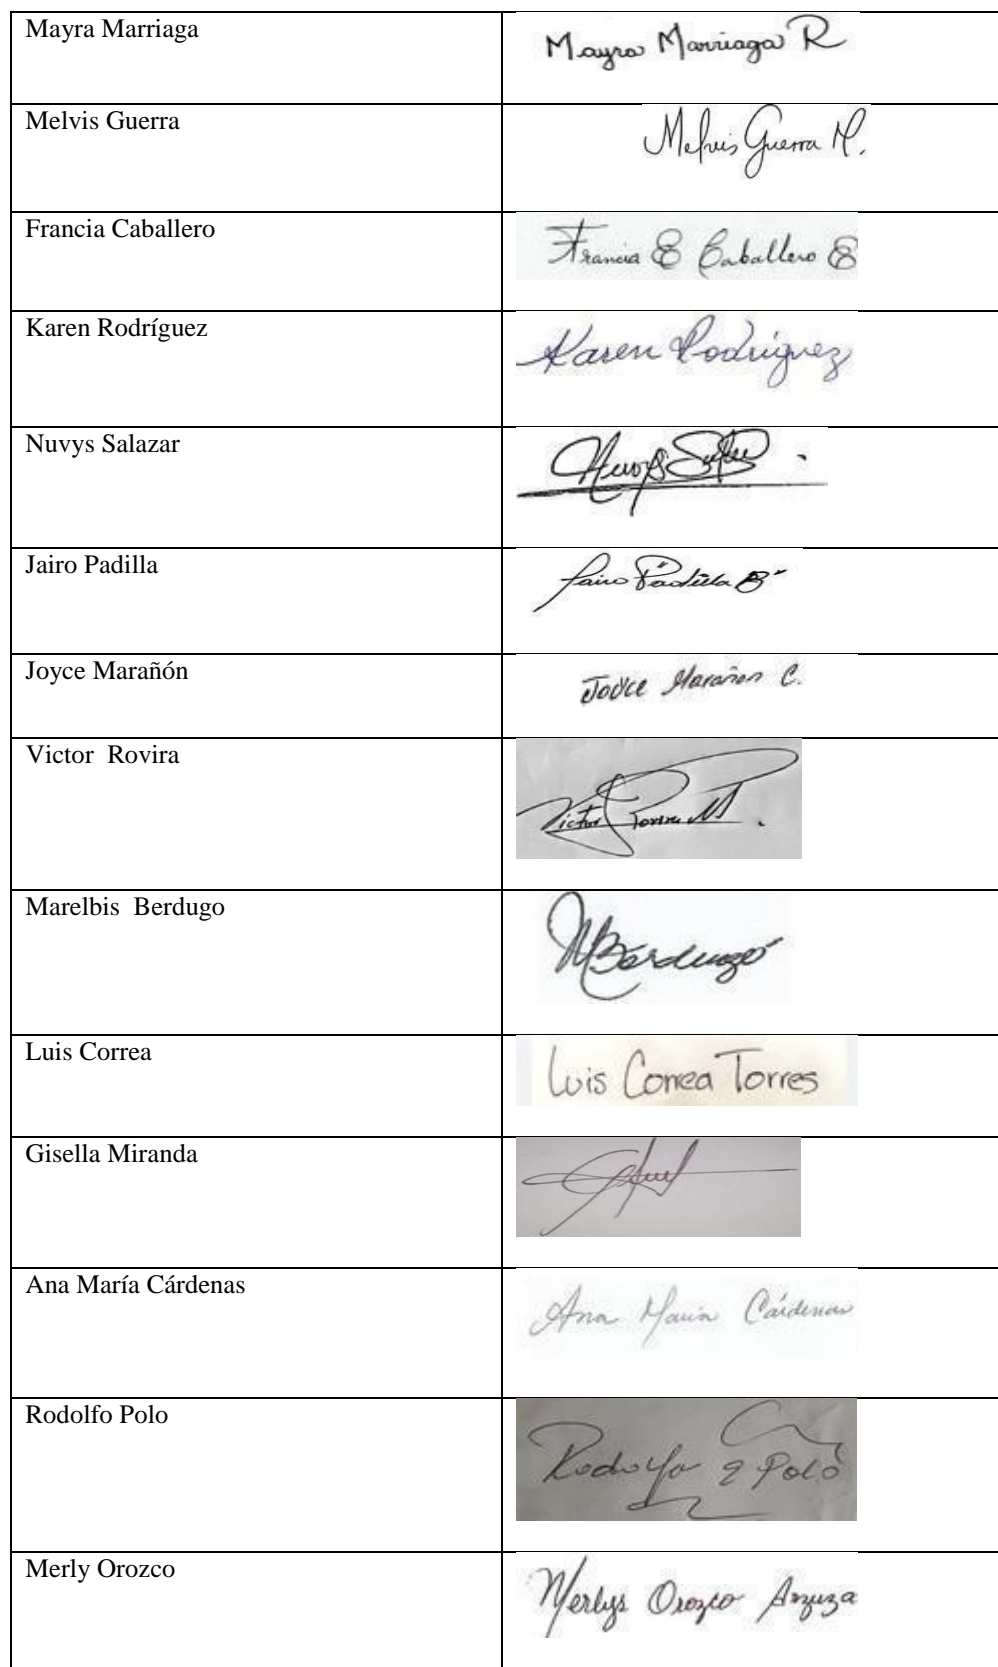 Mayra Marriaga
Mayra Marriaga R
Melvis Guerra
Melvis Guerra M.
Francia Caballero
Francia E Caballero E
Karen Rodríguez
Karen Rodríguez
Nuvys Salazar
Nuvys
Jairo Padilla
Jairo Padilla B
Joyce Marañón
Joyce Marañon C.
Victor  Rovira
Victor Rovira M
Marelbis  Berdugo
MBerdugo
Luis Correa
Luis Correa Torres
Gisella Miranda
Ana María Cárdenas
Ana María Cárdenas
Rodolfo Polo
Rodolfo E Polo
Merly Orozco
Merlys Orozco Anzuza